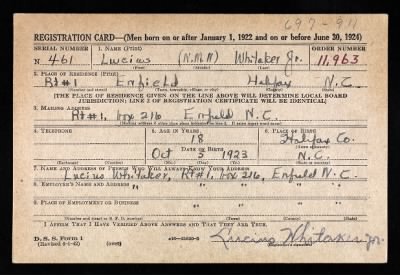 697-911
REGISTRATION CARD—(Men born on or after January 1, 1922 and on or before June 30, 1924)
SERIAL NUMBER 1. NAME (Print) ORDER NUMBER
N 461 Lucius (N.M.N) Whitaker Jr. 11,963
2. PLACE OF RESIDENCE (Print)
Rt#1 Enfield Halifax N.C.
(Number and street) (Town, township, village, or city) (County) (State)
[THE PLACE OF RESIDENCE GIVEN ON THE LINE ABOVE WILL DETERMINE LOCAL BOARD
JURISDICTION; LINE 2 OF REGISTRATION CERTIFICATE WILL BE IDENTICAL]
3. MAILING ADDRESS
Rt#1, Bx 216 Enfield N.C.
[Mailing address if other than place indicated on line 2. If same insert word same]
4. TELEPHONE 5. AGE IN YEARS 6. PLACE OF BIRTH
18 Halifax Co.
DATE OF BIRTH
Oct 5 1923 N.C.
(Mo.) (Day) (Yr.)
7. NAME AND ADDRESS OF PERSON WHO WILL ALWAYS KNOW YOUR ADDRESS
Lucius Whitaker, Rt#1, Bx 216, Enfield N.C.
8. EMPLOYER'S NAME AND ADDRESS
9. PLACE OF EMPLOYMENT OR BUSINESS
(Number and street or R. F. D. number) (Town) (County) (State)
I AFFIRM THAT I HAVE VERIFIED ABOVE ANSWERS AND THAT THEY ARE TRUE.
D. S. S. Form 1
(over) Lucius Whitaker Jr.